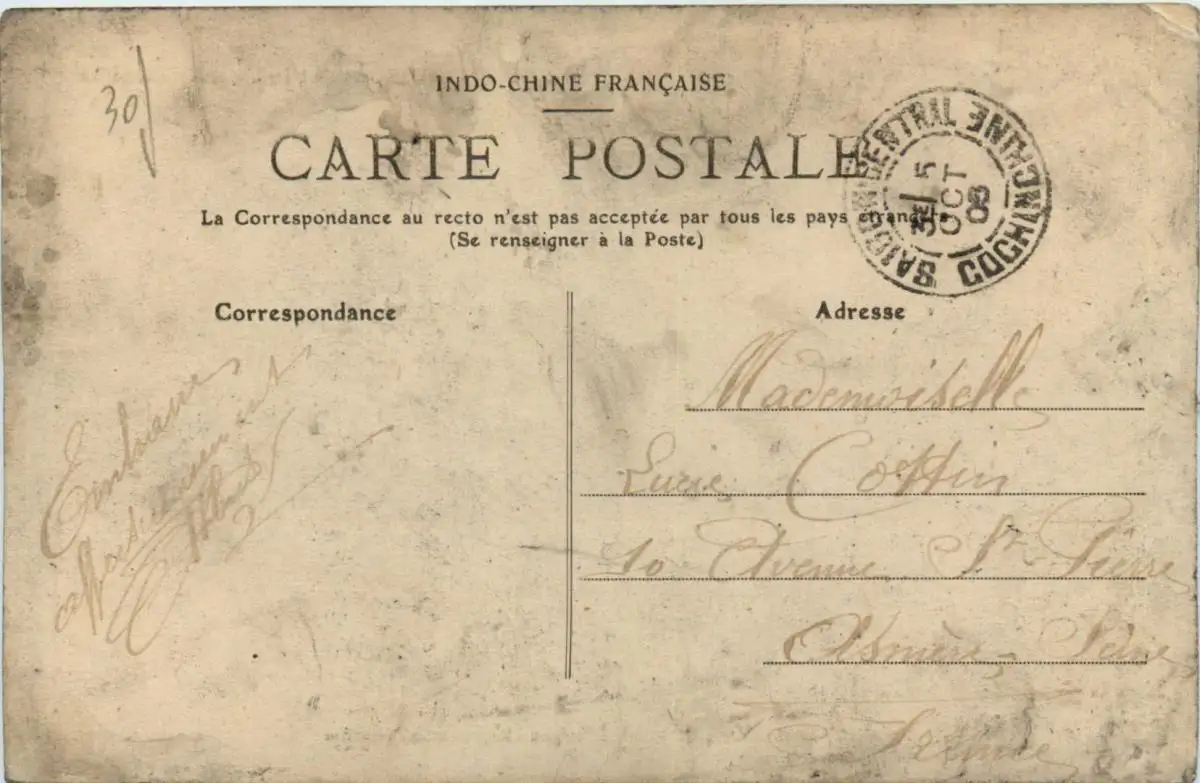 30
INDO-CHINE FRANÇAISE
CARTE POSTALE
La Correspondance au recto n'est pas acceptée par tous les pays étrangers
(Se renseigner à la Poste)
SAIGON CENTRAL COCHINCHINE
5
OCT
08
Correspondance
Adresse
Mademoiselle
Lucie Cottin
10 Avenue St Pierre
Asnière, Seine
France